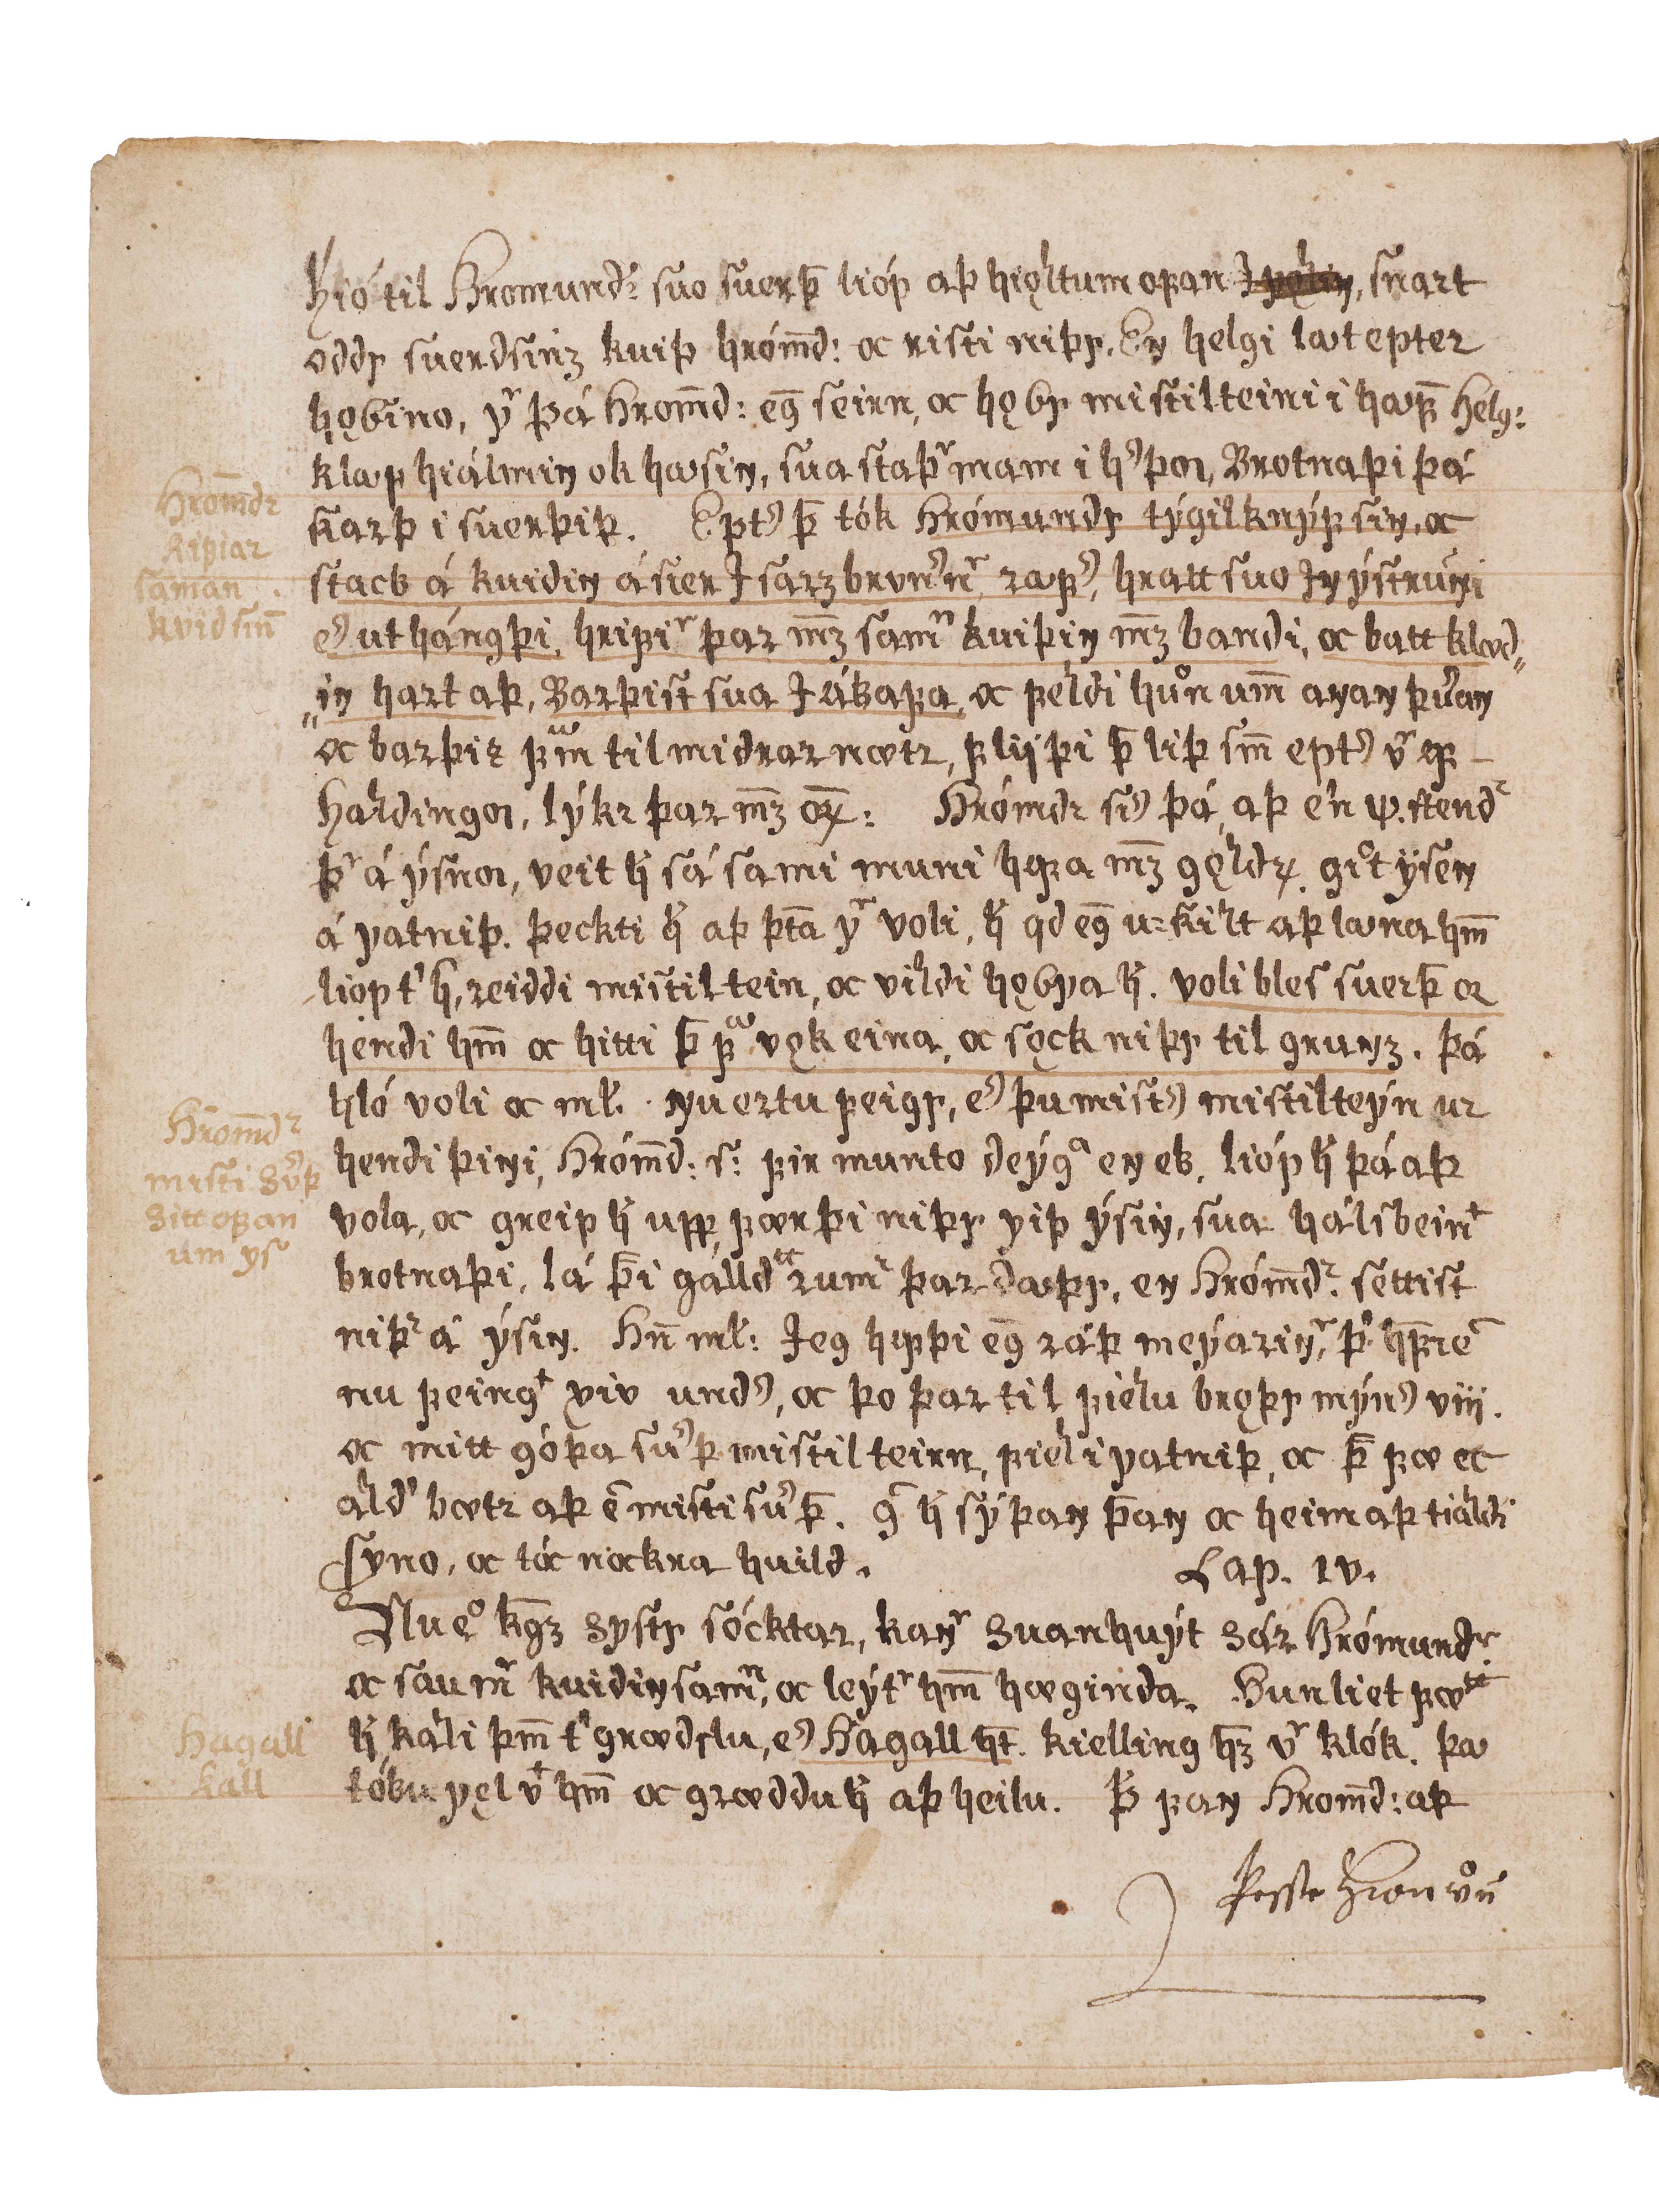 Hió til Hromundꝛ suo suerþ̄ lióp aþ hiǫltum opan J pǫllin, snart
oddr suerdsinz kuiþ hróm̄d: oc risti niþr. En helgi laut epter
hǫGino, ꝩͬ þá Hrom̄d: eg̅ seirn, oc hǫGr mistilteini i haup̄ Helg:
klauꝩ hiálmin ok hausin, sua staþͬ nam i hͤþoɩ, Brotnaþi þá
skarþ i suerþiþ. Eptͤ þ̄ tók Hrómundr týgilknýp sin, oc
stack á kuidin á sier J
hratt suo Jn ýstruni
eͤ ut hángþi, hripiͬ þar m̄z samͫ kuiþin m̄z bandi, oc batt klæd„
„in hart aþ, Barþist sua J ákapa, oc peldi huͦn um̄ anan þuͤan
oc barþiz pͣm til midrar nætr, plýþi þ̄ liþ sm̄ eptͤ vͬ
Haldingoɩ, lýkr þar m̄z Hrómdꝛ siͤ þá, aþ eín stendͬ
þͬ á ýsnoɩ, veit h̄ sá sami muni hapa m̄z gǫldꝝ. giͦt ýsen
á ꝩatniþ. Þeckti h̄ aþ þt̄a ꝩͬ voli, h̄ qd eg̅ u=skilt aþ launa hm̄
liop t' h, reiddi mistiltein, oc vildi hǫGꝩa h̄. voli bles suerþ̄ oꝛ
hendi hm̄ oc hitti þ̄ pͣ vǫk eina, oc sǫck niþr til grunz. Þá
hló voli oc ml̄. nu ertu peigr, eͤ þu mistͤ mistilteýn ur
hendi þini, Hróm̄d: s: pir munto deýgͣ en ek. lióp h̄ þá aþ
vola, oc greip h̄ upp, pærþi niþr ꝩiþ ýsin, sua hálsbeinͭ
brotnaþi. lá þ̄i galldͣrumͬ þar dauþr, en Hróm̄dꝛ. settist
niþꝛ á ýsin. Hn̄ ml̄: Jeg hipþi eg̅ ráþ meýarinͬ, þͦ hp̄i eͬ
nu peingͭ xiv undͤ, oc þo þar til pielu brǫþr mýnͤ viij.
oc mitt góþa suͤþ mistilteirn, piel i ꝩatniþ, oc þ̄ pæ ec
aldꝰ bætr aþ e̅ misti suͤþ̄. gͬ h̄ sýþan þ̄an oc heim aþ tialdi
syno, oc tóc nockra huild. Cap. IV.
Nu eͦ kg̅z systr sócktar, kanͬ Suanhuýt Sár Hrómundꝛ.
oc saumͬ kuidin samͫ, oc leýtͬ hm̄ hæginda. Hun liet pæͬ
h̄ kali þm̄ tꝰ grædslu, eͤ Hagall ht̄. kielling hz̄ vͬ klók. þau
tóku ꝩęl vͭ hm̄ oc grædduh̄ aþ heilu. Þ̄ pan Hrom̄d: aþ
þesse hion uͦu̅
Hrom̄dꝛ
Ripiar
saman
kvid sin̄
Hrom̄dꝛ
misti Suͤþ
Sitt opan
um ys
Hagall
kall